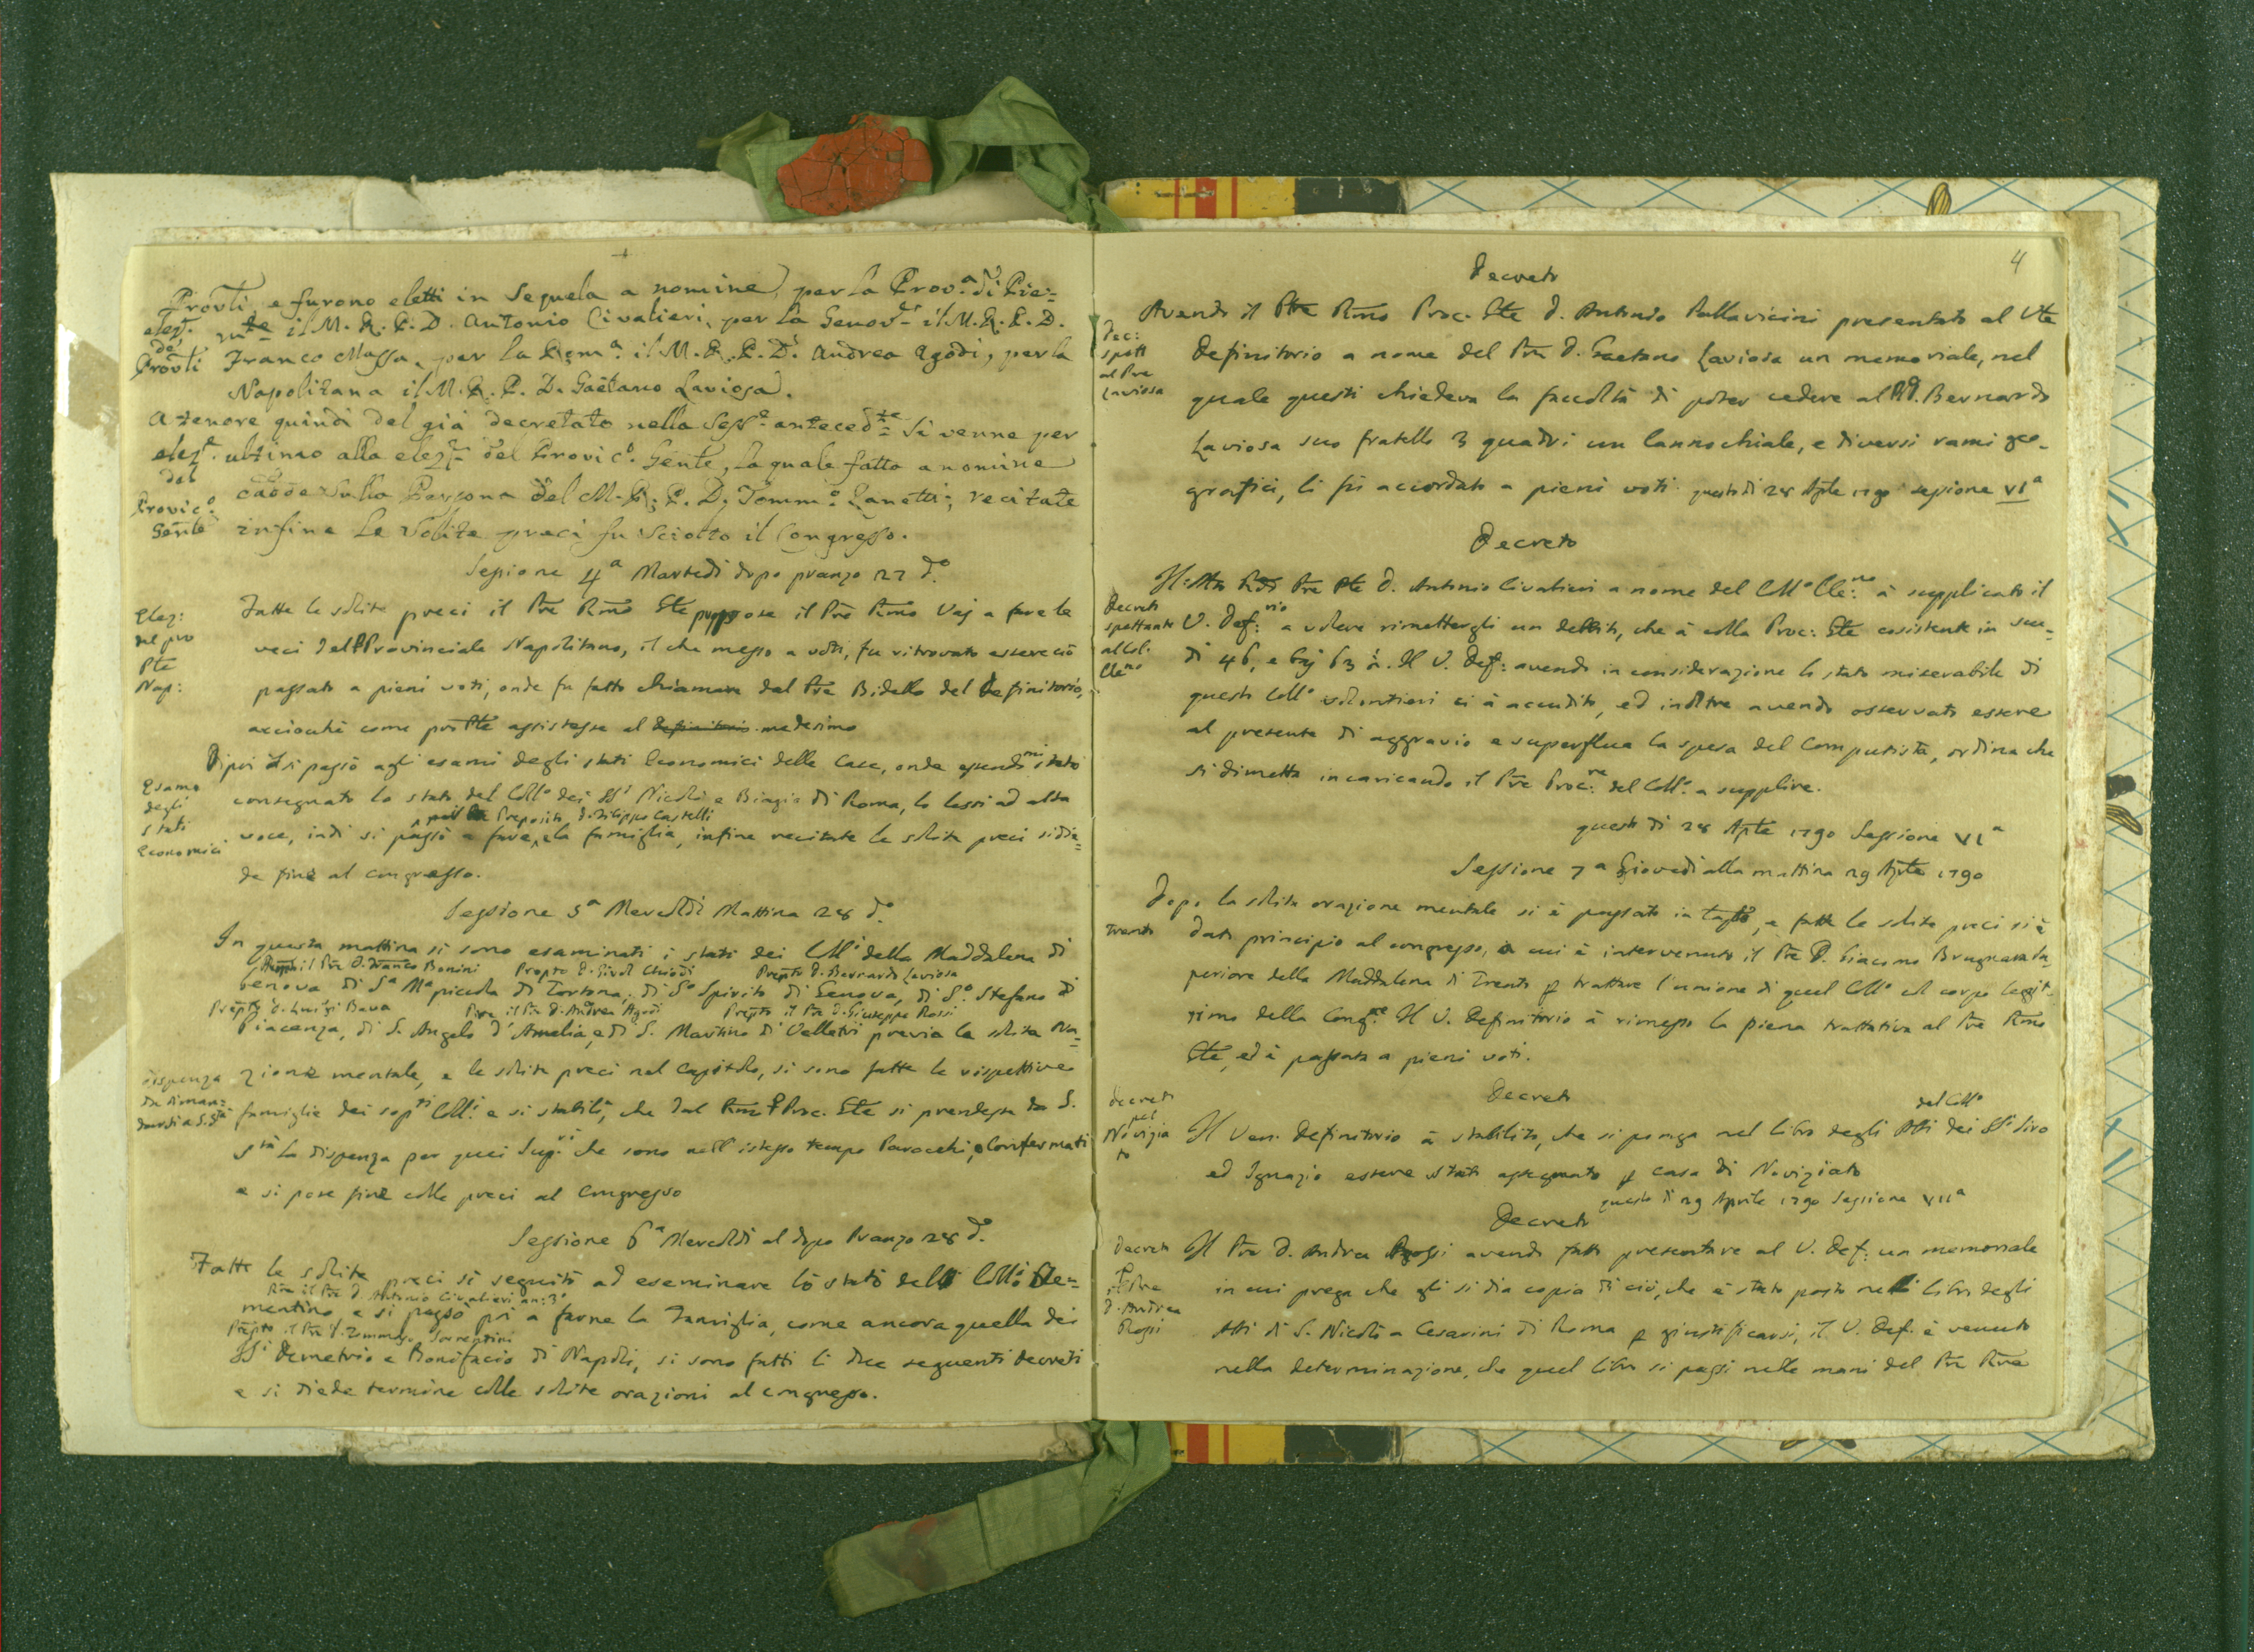 Prov.li e furono eletti in Sequela a nomine, per la Prov.a di Pie=
elez.e del Prov.li
m.te il M. R. P. D. Antonio Civalieri, per la Genov.se il M. R. P. D.
Franco Massa, per la Rom.a il M. R. P. D. Andrea Agodi, per la
Napolitana il M. R. P. D. Gaetano Laviosa.
A tenore quindi del già decretato nella Sess.e anteced.te si venne per
elez.e del Provic.o Gen̄le
ultimo alla elez.ne del Provic.o Gen̄le, la quale fatta a nomine
cadde sulla Persona del M. R. P. D. Tomm.o Zanetti; recitate
infine le Solite preci fu sciolto il Congresso.
Sessione 4a Martedì dopo pranzo 27 d.o
Elez: del pro Pl̄e Nap:
Fatte le solite preci il P̄re R̄mo G̅le propose il P̄re R̄mo Vaj a fare le
veci del Provinciale Napolitano, il che messo a voti, fu ritrovato essere ciò
passato a pieni voti, onde fu fatto chiamare dal P̄re Bidello del Definitorio,
acciochè come pro Pl̄e assistesse al Definitorio medesimo
Di poi si passò agli esami degli stati Economici delle Case, onde essendomi stato
Esame degli stati Economici
consegnato lo stato del Coll.o dei SS.i Nicolò e Biagio di Roma, lo lessi ad alta
Preposito D. Filippo Castelli
voce, indi si passò a fare la famiglia, infine recitate le solite preci si die=
de fine al congresso.
Sessione 5a Mercoldì Mattina 28 d.o
In questa mattina si sono esaminati i stati dei Coll.i della Maddalena di
il P̄re D. Franco Bonini Prep̄to D. Girol Chiodi Prep̄to D. Bernardo Laviosa
Genova di S.a M.a piccola di Tortona, di S.o Spirito di Genova, di S.o Stefano di
Prep̄to D. Luigi Bava il P̄re D. Andrea Agodi Prep̄to il P̄re D. Giuseppe Rossi
Piacenza, di S. Angelo d'Amelia, e di S. Martino di Velletri previa la solita Ora=
dispenza da diman= darsi a S. S.tà
zione mentale, e le solite preci nel Capitolo, si sono fatte le rispettive
famiglie dei sop.ti Coll.i e si stabilì, che dal R̄mo P Proc. G̅le si prendesse da S.
S.tà la dispenza per quei Sup.ri che sono nell'istesso tempo Parocchi, o Confermati
e si pose fine colle preci al Congresso
Sessione 6a Mercoldì al dopo Pranzo 28 d.o
Fatte le solite preci si seguitò ad eseminare lo stato del Coll.o Cle=
il P̄re D. Antonio Civalieri an: 3.o
mentino, e si passò poi a farne la Famiglia, come ancora quella dei
Prep̄to il P̄re D. Tommaso Sorrentini
SS.i Demetrio e Bonifacio di Napoli, si sono fatti li due seguenti decreti
e si diede termine colle solite orazioni al congresso.
4
Decreto
Avendo il P̄re R̄mo Proc. G̅le D. Antonio Pallavicini presentato al V̄le
Dec: spett al P̄re Laviosa
Definitorio a nome del P̄re D. Gaetano Laviosa un memoriale, nel
quale questi chiedeva la facoltà di poter cedere al P D. Bernardo
Laviosa suo fratello 3 quadri un Cannochiale, e diversi rami geo-
grafici, li fù accordato a pieni voti questo dì 28 Ap̄le 1790 sessione VIa
Decreto
Il P̄re D. Antonio Civalieri a nome del Coll.o Cle:no à supplicato il
Decreto spettante al Col. Cle.no
V. Def:rio a volere rimettergli un debito, che à colla Proc: G̅le cosistente in scu=
di 46, e baj 63 ½. Il V. Def: avendo in considerazione lo stato miserabile di
questo Coll.o volontieri ci à accudito, ed inoltre avendo osservato essere
al presente di aggravio e superflua la spesa del Computista, ordina che
si dimetta incaricando il P̄re Proc:re del Coll.o a supplire.
questo dì 28 Ap̄le 1790 Sessione VIa
Sessione 7a Giovedì alla mattina 29 Ap̄le 1790
Dopo la solita orazione mentale si è passato in Cap̄lo, e fatte le solite preci si è
Trento
dato principio al congresso, a cui è intervenuto il P̄re D. Giacomo Brugnara Su
periore della Maddalena di Trento p trattare l'unione di quel Coll.o col corpo legit-
timo della Cong.ne Il V. Definitorio à rimesso la piena trattativa al P̄re R̄mo
G̅le, ed è passata a pieni voti.
Decreto
decreto pel Novizia to
del Coll.o
Il Ven: Definitorio à stabilito, che si ponga nel libro degli Atti dei SS.i Siro
ed Ignazio essere stato assegnato p casa di Noviziato
questo dì 29 Aprile 1790 Sessione VIIa
Decreto
Decreto p il P̄re D. Andrea Rossi
Il P̄re D. Andrea Rossi avendo fatto presentare al V. Def: un memoriale
in cui prega che gli si dia copia di ciò, che è stato posto nel libro degli
Atti di S. Nicolò a Cesarini di Roma p giustificarsi, il V. Def. è venuto
nella determinazione, che quel libro si passi nelle mani del P̄re